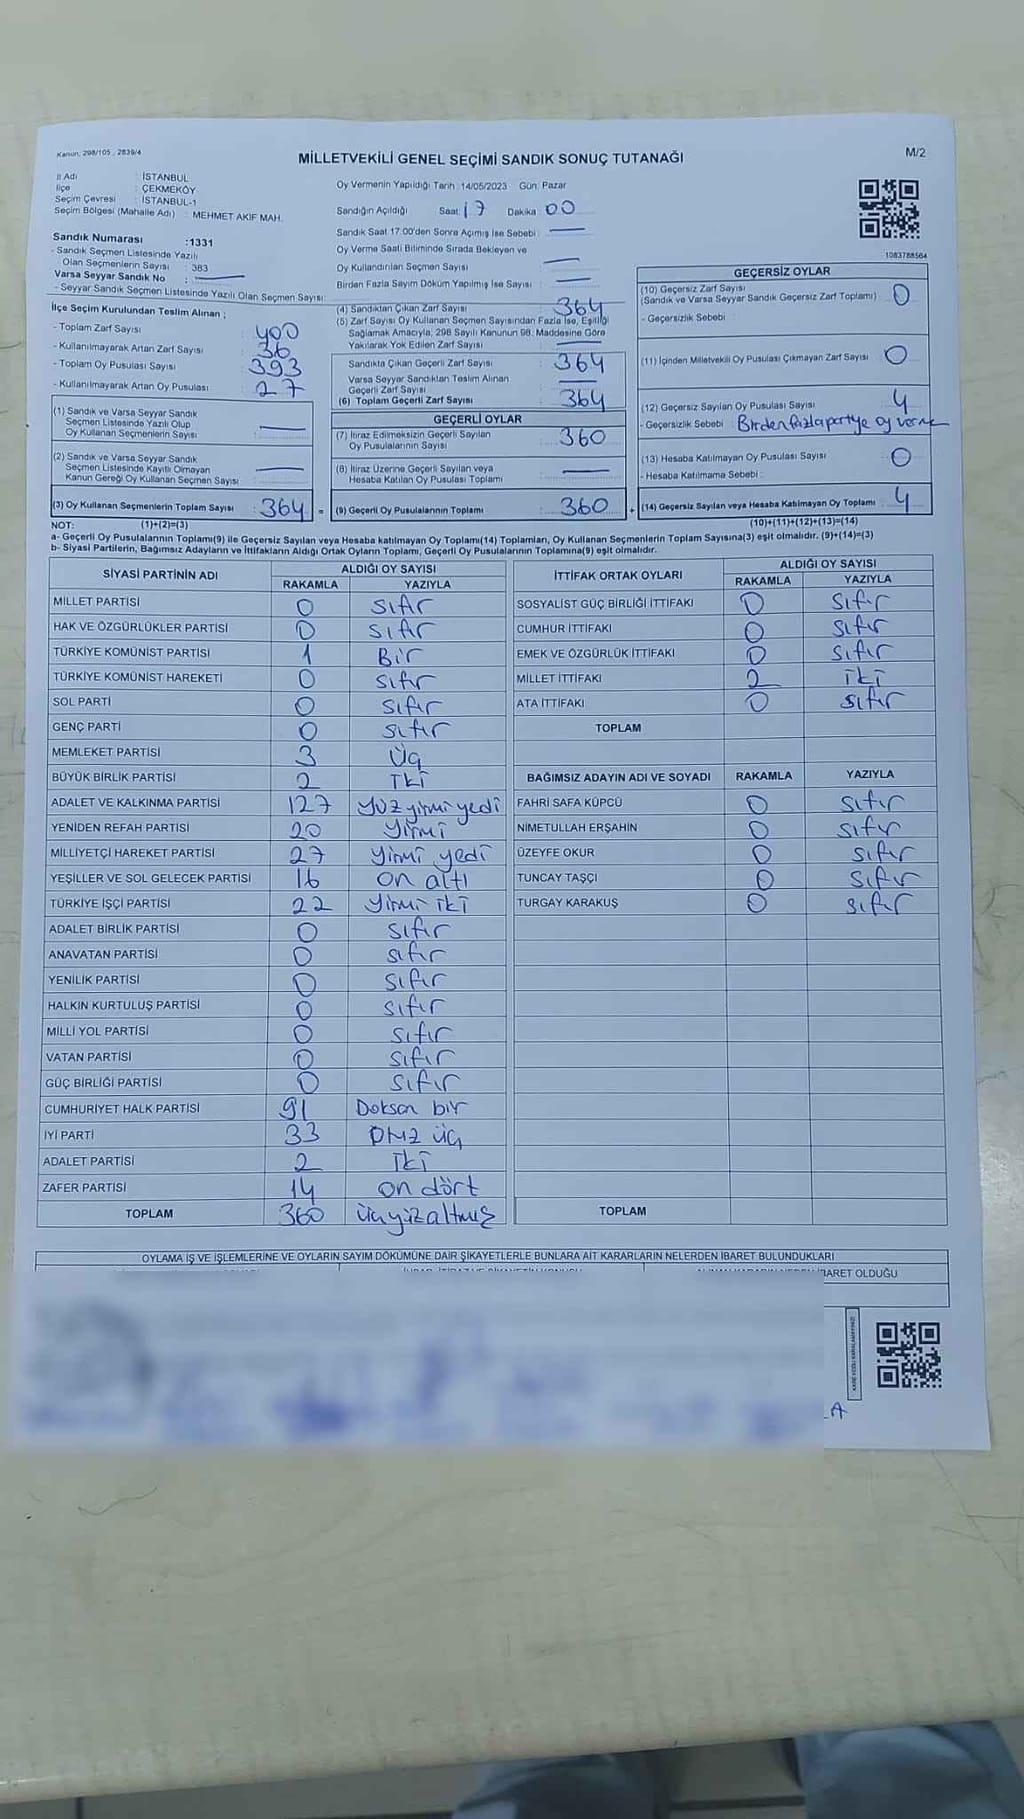 Kanun: 298/105 , 2839/4
MİLLETVEKİLİ GENEL SEÇİMİ SANDIK SONUÇ TUTANAĞI
M/2
İl Adı : İSTANBUL
İlçe : ÇEKMEKÖY
Seçim Çevresi : İSTANBUL-1
Seçim Bölgesi (Mahalle Adı) : MEHMET AKİF MAH.
Oy Vermenin Yapıldığı Tarih :14/05/2023 Gün: Pazar
Sandığın Açıldığı Saat: 17 Dakika: 00
Sandık Saat 17:00'den Sonra Açımış İse Sebebi :
Oy Verme Saati Bitiminde Sırada Bekleyen ve
Oy Kullandırılan Seçmen Sayısı :
Birden Fazla Sayım Döküm Yapılmış İse Sayısı :
1083788564
Sandık Numarası :1331
- Sandık Seçmen Listesinde Yazılı
Olan Seçmenlerin Sayısı : 383
Varsa Seyyar Sandık No :
- Seyyar Sandık Seçmen Listesinde Yazılı Olan Seçmen Sayısı:
İlçe Seçim Kurulundan Teslim Alınan ;
- Toplam Zarf Sayısı : 400
- Kullanılmayarak Artan Zarf Sayısı : 36
- Toplam Oy Pusulası Sayısı : 393
- Kullanılmayarak Artan Oy Pusulası : 27
(1) Sandık ve Varsa Seyyar Sandık
Seçmen Listesinde Yazılı Olup
Oy Kullanan Seçmenlerin Sayısı :
(2) Sandık ve Varsa Seyyar Sandık
Seçmen Listesinde Kayıtlı Olmayan
Kanun Gereği Oy Kullanan Seçmen Sayısı :
(3) Oy Kullanan Seçmenlerin Toplam Sayısı : 364 =
(4) Sandıktan Çıkan Zarf Sayısı : 364
(5) Zarf Sayısı Oy Kullanan Seçmen Sayısından Fazla İse, Eşitliği
Sağlamak Amacıyla, 298 Sayılı Kanunun 98. Maddesine Göre
Yakılarak Yok Edilen Zarf Sayısı :
Sandıkta Çıkan Geçerli Zarf Sayısı : 364
Varsa Seyyar Sandıktan Teslim Alınan
Geçerli Zarf Sayısı :
(6) Toplam Geçerli Zarf Sayısı : 364
GEÇERLİ OYLAR
(7) İtiraz Edilmeksizin Geçerli Sayılan
Oy Pusulalarının Sayısı : 360
(8) İtiraz Üzerine Geçerli Sayılan veya
Hesaba Katılan Oy Pusulası Toplamı :
(9) Geçerli Oy Pusulalarının Toplamı : 360 +
GEÇERSİZ OYLAR
(10) Geçersiz Zarf Sayısı
(Sandık ve Varsa Seyyar Sandık Geçersiz Zarf Toplamı) : 0
- Geçersizlik Sebebi :
(11) İçinden Milletvekili Oy Pusulası Çıkmayan Zarf Sayısı : 0
(12) Geçersiz Sayılan Oy Pusulası Sayısı : 4
- Geçersizlik Sebebi : Birden fazla partiye oy verme
(13) Hesaba Katılmayan Oy Pusulası Sayısı : 0
- Hesaba Katılmama Sebebi :
(14) Geçersiz Sayılan veya Hesaba Katılmayan Oy Toplamı : 4
NOT: (1)+(2)=(3)
(10)+(11)+(12)+(13)=(14)
a- Geçerli Oy Pusulalarının Toplamı(9) ile Geçersiz Sayılan veya Hesaba katılmayan Oy Toplamı(14) Toplamları, Oy Kullanan Seçmenlerin Toplam Sayısına(3) eşit olmalıdır. (9)+(14)=(3)
b- Siyasi Partilerin, Bağımsız Adayların ve İttifakların Aldığı Ortak Oyların Toplamı, Geçerli Oy Pusulalarının Toplamına(9) eşit olmalıdır.
SİYASİ PARTİNİN ADI ALDIĞI OY SAYISI
RAKAMLA YAZIYLA
MİLLET PARTİSİ 0 sıfır
HAK VE ÖZGÜRLÜKLER PARTİSİ 0 sıfır
TÜRKİYE KOMÜNİST PARTİSİ 1 Bir
TÜRKİYE KOMÜNİST HAREKETİ 0 sıfır
SOL PARTİ 0 sıfır
GENÇ PARTİ 0 sıfır
MEMLEKET PARTİSİ 3 Üç
BÜYÜK BİRLİK PARTİSİ 2 İki
ADALET VE KALKINMA PARTİSİ 127 Yüz yirmi yedi
YENİDEN REFAH PARTİSİ 20 Yirmi
MİLLİYETÇİ HAREKET PARTİSİ 27 Yirmi yedi
YEŞİLLER VE SOL GELECEK PARTİSİ 16 on altı
TÜRKİYE İŞÇİ PARTİSİ 22 Yirmi iki
ADALET BİRLİK PARTİSİ 0 sıfır
ANAVATAN PARTİSİ 0 sıfır
YENİLİK PARTİSİ 0 sıfır
HALKIN KURTULUŞ PARTİSİ 0 sıfır
MİLLİ YOL PARTİSİ 0 sıfır
VATAN PARTİSİ 0 sıfır
GÜÇ BİRLİĞİ PARTİSİ 0 sıfır
CUMHURİYET HALK PARTİSİ 91 Doksan bir
İYİ PARTİ 33 otuz üç
ADALET PARTİSİ 2 iki
ZAFER PARTİSİ 14 on dört
TOPLAM 360 üçyüzaltmış
İTTİFAK ORTAK OYLARI ALDIĞI OY SAYISI
RAKAMLA YAZIYLA
SOSYALİST GÜÇ BİRLİĞİ İTTİFAKI 0 sıfır
CUMHUR İTTİFAKI 0 sıfır
EMEK VE ÖZGÜRLÜK İTTİFAKI 0 sıfır
MİLLET İTTİFAKI 2 iki
ATA İTTİFAKI 0 sıfır
TOPLAM
BAĞIMSIZ ADAYIN ADI VE SOYADI RAKAMLA YAZIYLA
FAHRİ SAFA KÜPCÜ 0 sıfır
NİMETULLAH ERŞAHİN 0 sıfır
ÜZEYFE OKUR 0 sıfır
TUNCAY TAŞÇI 0 sıfır
TURGAY KARAKUŞ 0 sıfır
TOPLAM
OYLAMA İŞ VE İŞLEMLERİNE VE OYLARIN SAYIM DÖKÜMÜNE DAİR ŞİKAYETLERLE BUNLARA AİT KARARLARIN NELERDEN İBARET BULUNDUKLARI